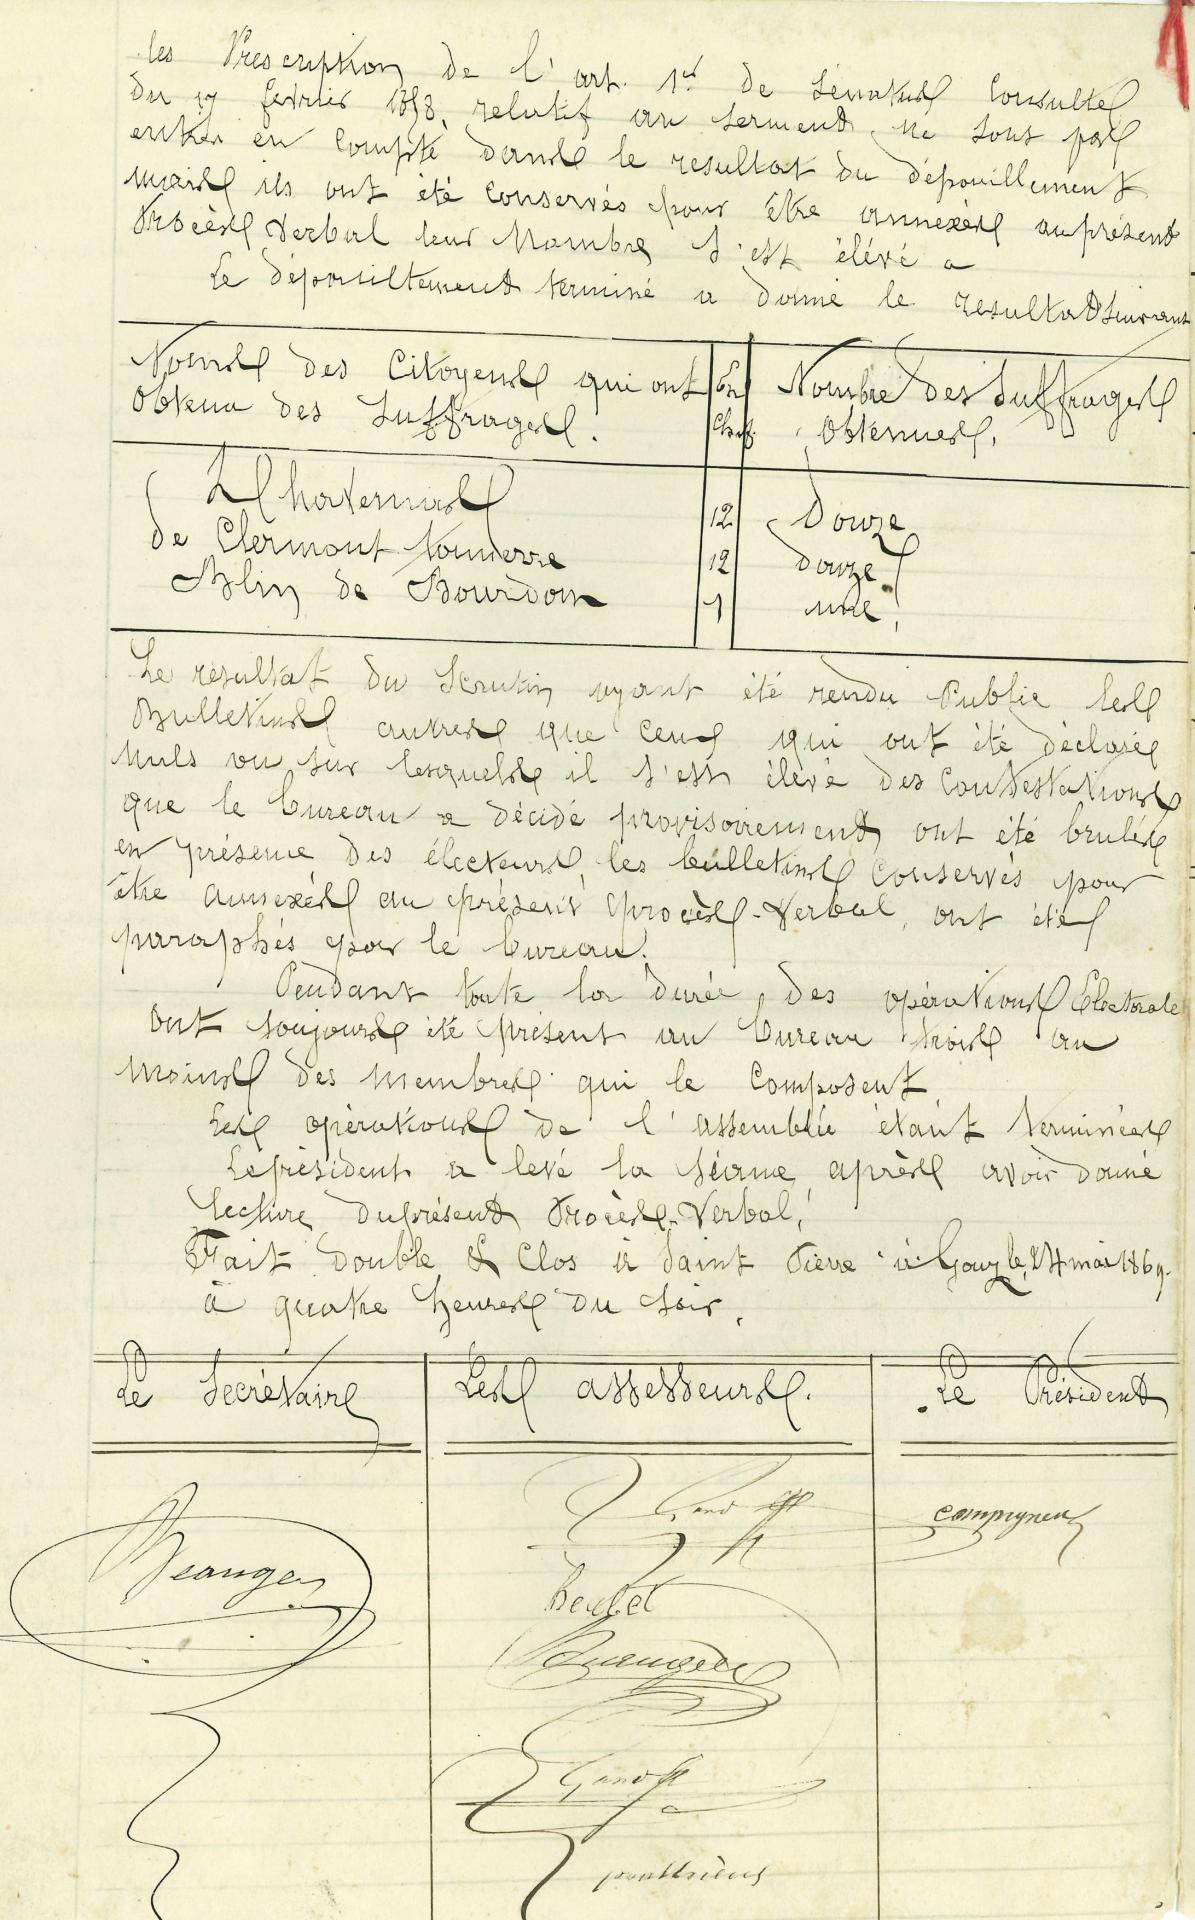 les Prescription de l'art. 1er de Sénatus Consulte
du 17 fevrier 1858, relatif au serment, ne sont pas
entrés en Compte dans le resultat du dépouillement
mais ils ont été Conservés pour être annexés au présent
Procès Verbal leur Nombre s'est élévé a
Le dépouillement terminé a donné le resultat suivant
Noms des Citoyens qui ont obtenu des Suffrages.
En Chif.
Nombre des Suffrages obtenues.
L Chotennais 12 Douze
de Clermont Tonnerre 12 douze
Blin de Bourdon 1 une
Le résultat du Scrutin ayant été rendu Public les
Bulletins autres que ceux qui ont été déclarés
nuls ou sur lesquels il s'est élevé des Contestations
que le bureau a décidé provisoirement ont été brulés
en présence des électeurs, les bulletins Conservés pour
être annexés au présent procès-Verbal, ont été
paraphés par le bureau.
Pendant toute la durée des opérations Electorale
ont toujours été présent au bureau trois au
moins des membres qui le Composent
Les opérations de l'assemblée étant terminées
Le président a levé la séance après avoir donné
lecture du présent Procès-Verbal,
Fait double & Clos à Saint Pierre à Gouy le, 24 mai 1869.
à quatre heures du soir.
Le Secrétaire
Les assesseurs.
Le Président